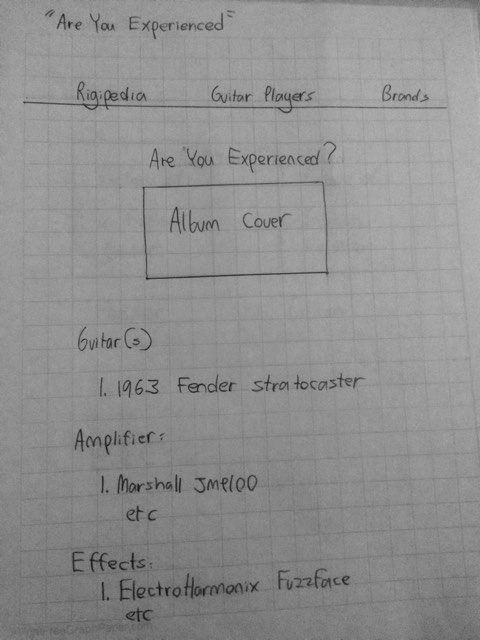 "Are You Experienced"
Rigipedia Guitar Players Brands
Are You Experienced?
Album Cover
Guitar(s)
1. 1963 Fender stratocaster
Amplifier:
1. Marshall JMP100
etc
Effects:
1. ElectroHarmonix Fuzzface
etc